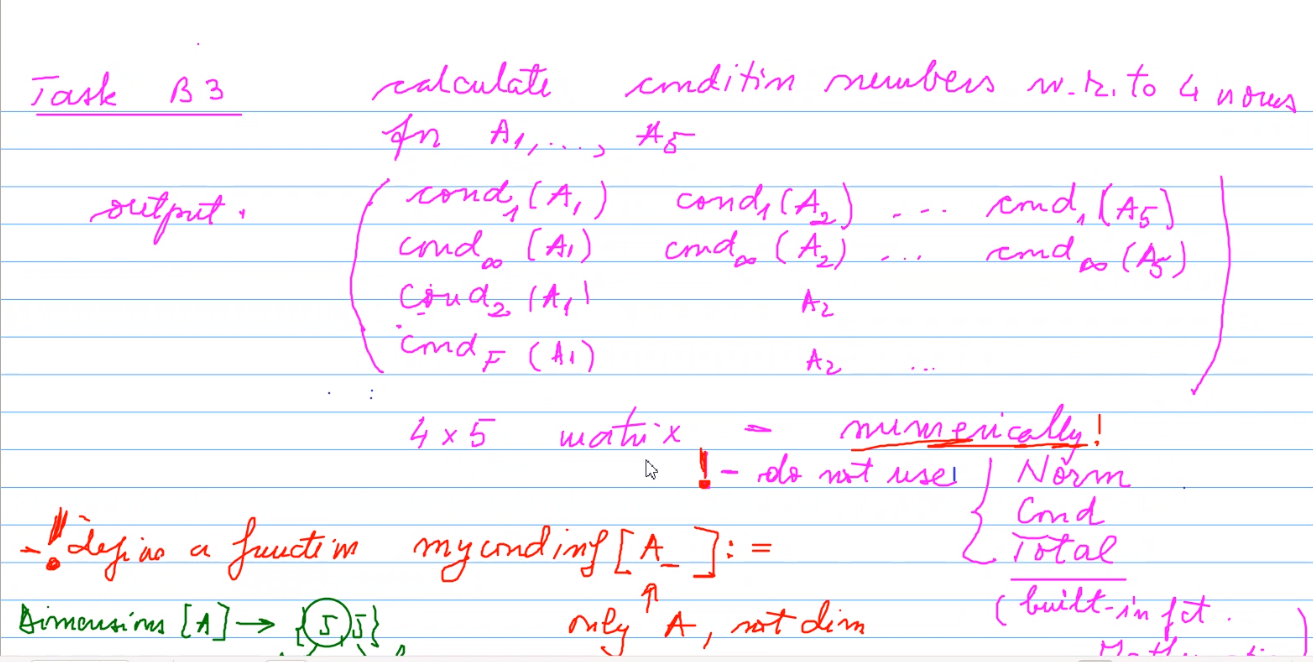 Task B3 calculate condition numbers w.r. to 4 norms
for A1, ..., A5
output. cond1(A1) cond1(A2) ... cond1(A5)
cond∞(A1) cond∞(A2) ... cond∞(A5)
cond2(A1) A2
condF(A1) A2 ...
4×5 matrix = numerically!
! - do not use Norm
Cond
Total
-! define a function mycondinf[A_]:=
(built-in fct.
Dimensions[A] → {5,5} only A, not dim